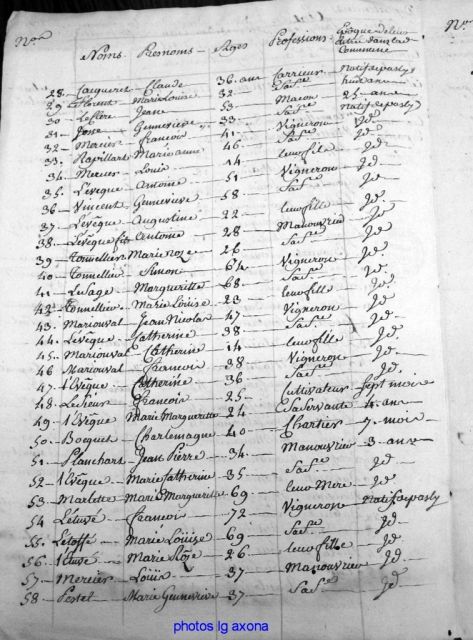 Nos Noms - Prenoms - Ages Professions - Epoque de leur Commune Nos
28 - Cacqueret - Claude - 36. ans Carrieur natif de pasly
29 - Florent - Marie Louise - 32 - Sa fe huit ans
30 - Jean - 53 - Macon - 25. ans
31 - Josse - Genneviève - 33 - Sa fe natif de pasly
32 - Mercier - francois - 41 - Vigneron Jd
33. Rapillart - Marie anne - 46 - Sa fe Jd
34. - Mercier - Louis - 14 - leur fils Jd
35. - Levêque - Antoine - 51 - Vigneron Jd
36 - Vincent - Genneviève - 58 - Sa fe Jd
37 - Levêque - Augustine - 22 - leur fille - Jd
38 - Levêque fils Antoine - 28 - Manouvrier Jd
39 - Tonnellier - Marie Roze - 26 - Sa fe Jd
40 - Tonnellier - Simon - 64 - Vigneron - Jd
41 - LeSage - Margueritte - 68 - Sa fe Jd
42 - Tonnellier - Marie Louise - 23 - leur fille - Jd
43. - Marionval - Jean Nicolas - 47 - Vigneron - Jd
44 - Levêque - Catherine - 38 - Sa fe Jd
45. - Marionval - Catherine - 14 - leur fille - Jd
46 - Marionval - francois - 38 - Vigneron - Jd
47. - l'Evêque - Catherine - 36 - Sa fe Jd
48 - francois - 25 - Cultivateur Sept mois
49 - l'Evêque - Marie Margueritte - 24 - Sa Servante 4 - ans
50 - Bocquet - Charlemagne - 40 - Chartier - 7 - mois
51 - Planchart - Jean Pierre - 34 - Manouvrier - 3 - ans
52 - l'Evêque - Marie Catherine - 35 - Sa fe Jd
53 - Marlette - Marie Margueritte - 69 - leur Mere - Jd
54 - Létuvé - francois - 72 - Vigneron - natif de pasly
55. - Létoffé - Marie Louise - 69 - Sa fe Jd
56 - l'Etuvé - Marie Roze - 26 - leur fille - Jd
57 - Mercier - Louis - 37 - Manouvrier Jd
58 - Postel - Marie Gennevieve - 37 - Sa fe Jd
photos lg axona